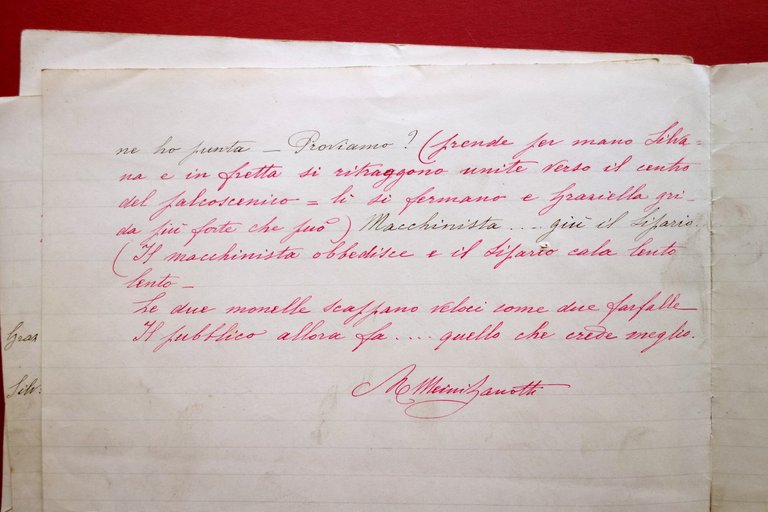 ne ho punta — Proviamo? (prende per mano Silva=
na e in fretta si ritraggono unite verso il centro
del palcoscenico = lì si fermano e Graziella gri-
da più forte che può) Macchinista .... giù il Sipario.
(Il macchinista obbedisce e il Sipario cala lento
lento —
Le due monelle scappano veloci come due farfalle
Il pubblico allora fa .... quello che crede meglio.
Graz
Silv: